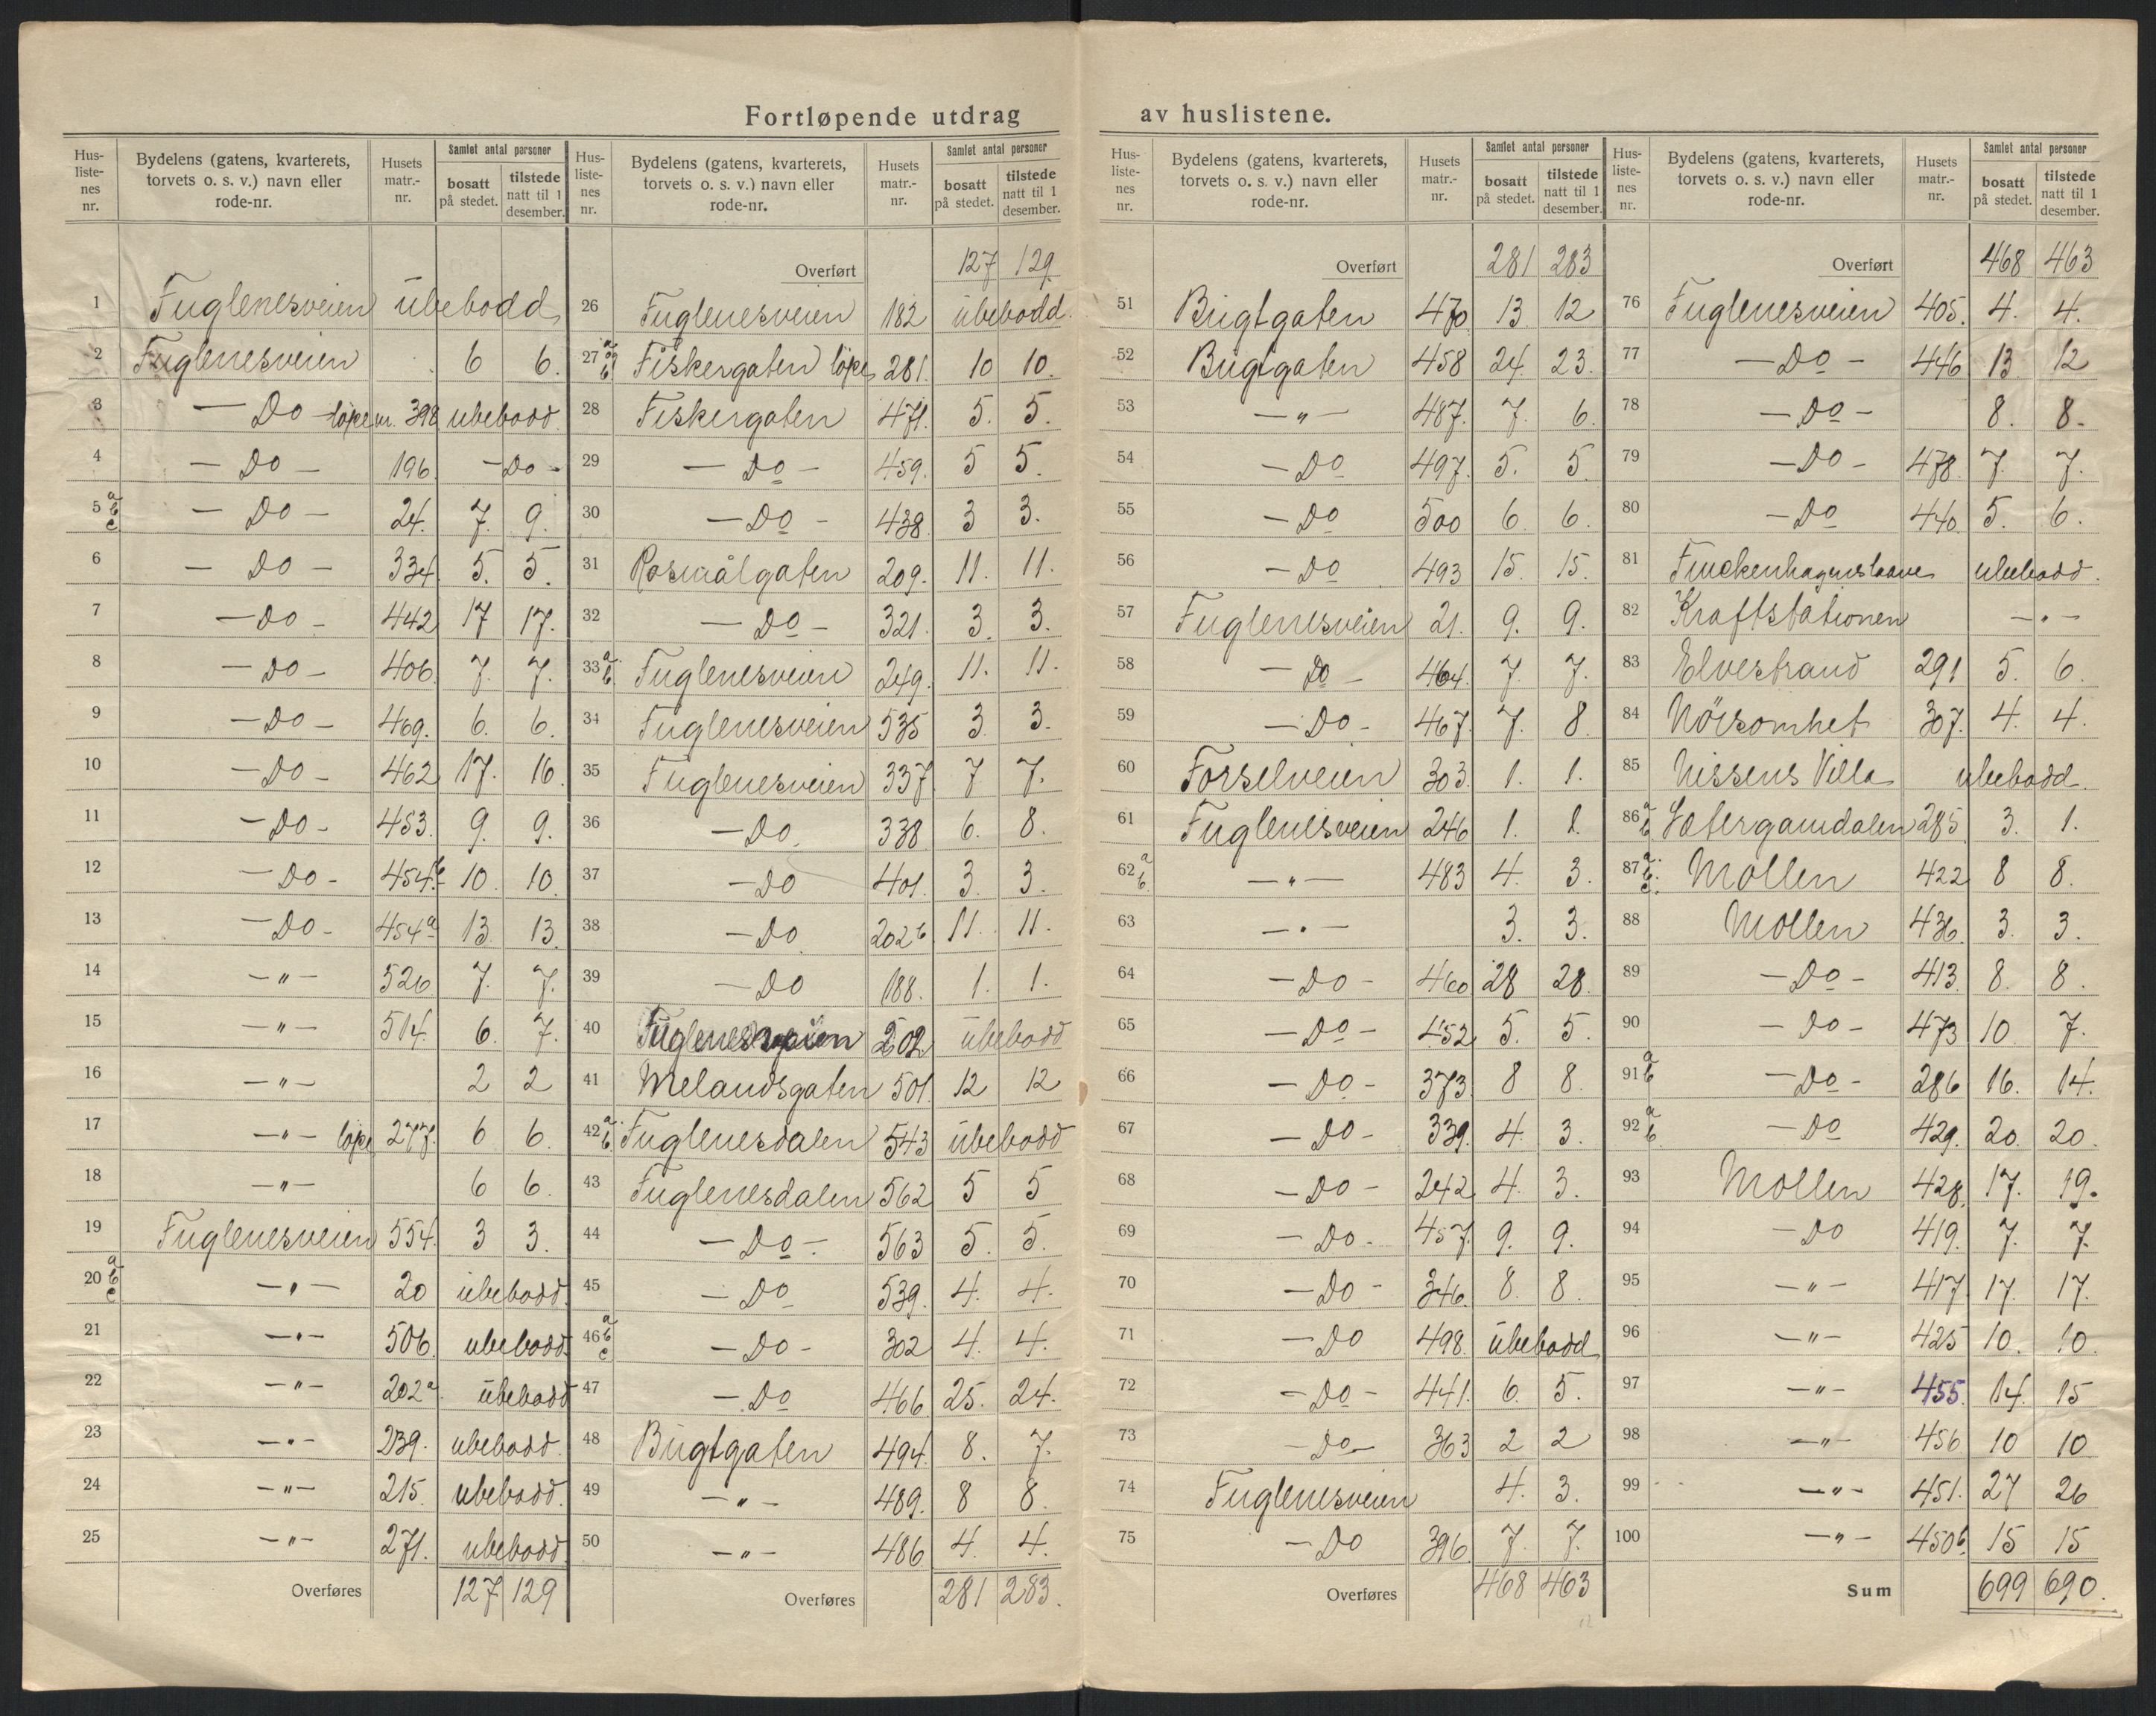 Fortløpende utdrag av huslistene.
Hus-liste-nes nr. | Bydelens (gatens, kvarterets, torvets o. s. v.) navn eller rode-nr. | Husets matr.-nr. | Samlet antal personer bosatt på stedet. | tilstede natt til 1 desember.
1 Fuglenesveien übebodd
2 Fuglenesveien 6 6.
3 — Do — løpe nr. 398 ubebodd
4 — Do — 196 — Do —
5 a b c — Do — 24. 7. 9.
6 — Do — 334 5. 5.
7 — Do — 442 17 17.
8 — Do — 406 7. 7.
9 — Do — 469. 6. 6.
10 — Do — 462 17. 16.
11 — Do — 453. 9. 9.
12 — Do — 454 b 10. 10.
13 — Do — 454 a 13 13.
14 — " — 526 7. 7.
15 — " — 514. 6. 7.
16 — " — 2 2
17 — " — løpe 277. 6 6.
18 — " — 6 6.
19 Fuglenesveien 554. 3 3.
20 a b c — " — 20 übebodd.
21 — " — 506. ubebodd.
22 — " — 202 a. übebodd
23 — " — 239. ubebodd.
24 — " — 215. ubebodd.
25 — " — 271. ubebodd.
Overføres 127 129
Hus-liste-nes nr. | Bydelens (gatens, kvarterets, torvets o. s. v.) navn eller rode-nr. | Husets matr.-nr. | Samlet antal personer bosatt på stedet. | tilstede natt til 1 desember.
Overført 127 129
26 Fuglenesveien 182 übebodd.
27 a b Fiskergaten løpe 281. 10 10.
28 Fiskergaten 471. 5. 5.
29 — Do — 459. 5 5.
30 — Do — 438 3 3.
31 Rosmålgaten 209. 11. 11.
32 — Do — 321. 3. 3.
33 a b. Fuglenesveien 249. 11. 11.
34 Fuglenesveien 535 3 3.
35 Fuglenesveien 337 7 7.
36 — Do. 338 6. 8.
37 — Do 401. 3. 3.
38 — Do 202 b. 11. 11.
39 — Do 188. 1. 1.
40 Fuglenesveien 202 übebodd
41 Melandsgaten 501. 12 12
42 a b. Fuglenesdalen 543 übebodd
43 Fuglenesdalen 562 5 5
44 — Do — 563 5. 5.
45 — Do 539. 4. 4.
46 a b c — Do — 302 4. 4.
47 — Do 466 25. 24.
48 Bugtgaten 494. 8. 7.
49 — " — 489. 8 8.
50 — " — 486 4. 4.
Overføres 281 283.
Hus-liste-nes nr. | Bydelens (gatens, kvarterets, torvets o. s. v.) navn eller rode-nr. | Husets matr.-nr. | Samlet antal personer bosatt på stedet. | tilstede natt til 1 desember.
Overført 281 283
51 Bugtgaten 470 13 12
52 Bugtgaten 458 24. 23.
53 — " — 487. 7. 6.
54 — Do 497. 5. 5
55 — Do 500 6. 6.
56 — Do 493 15. 15.
57 Fuglenesveien 21. 9. 9.
58 — Do — 464. 7. 7.
59 — Do — 467. 7. 8.
60 Forselveien 303. 1. 1.
61 Fuglenesveien 246 1. 1.
62 a b. — " — 483 4. 3.
63 — " — 3. 3.
64 — Do — 460 28 28.
65 — Do — 452 5. 5.
66 — Do — 373. 8 8.
67 — Do — 339. 4. 3.
68 — Do — 242 4. 3.
69 — Do. 457. 9. 9.
70 — Do — 346. 8. 8.
71 — Do 498. übebodd
72 — Do — 441. 6. 5.
73 — Do — 363 2 2
74 Fuglenesveien 4. 3.
75 — Do 396 7. 7.
Overføres 468 463
Hus-liste-nes nr. | Bydelens (gatens, kvarterets, torvets o. s. v.) navn eller rode-nr. | Husets matr.-nr. | Samlet antal personer bosatt på stedet. | tilstede natt til 1 desember.
Overført 468 463
76 Fuglenesveien 405. 4. 4.
77 — Do — 446 13. 12
78 — Do — 8. 8.
79 — Do — 478. 7. 7.
80 — Do 440. 5. 6.
81 Finckenhagenslaave ubebodd.
82 Kraftstationen — " —
83 Elvestrand 291 5. 6.
84 Nöisomhet 307. 4. 4.
85 Nissens Villa ubebodd.
86 a b Sætergamdalen 285 3. 1.
87 a b c. Mollen 422 8 8.
88 Mollen 436. 3. 3.
89 — Do — 413. 8. 8.
90 — Do — 473 10 7.
91 a b — Do — 286 16. 14.
92 a b. — Do 429. 20. 20.
93 Mollen 428. 17. 19.
94 — Do 419. 7. 7.
95 — " — 417 17. 17.
96 — " — 425 10. 10.
97 — " — 455. 14. 15
98 — " — 456 10 10
99 — " — 451. 27 26
100 — " — 450 b. 15 15
Sum 699 690.